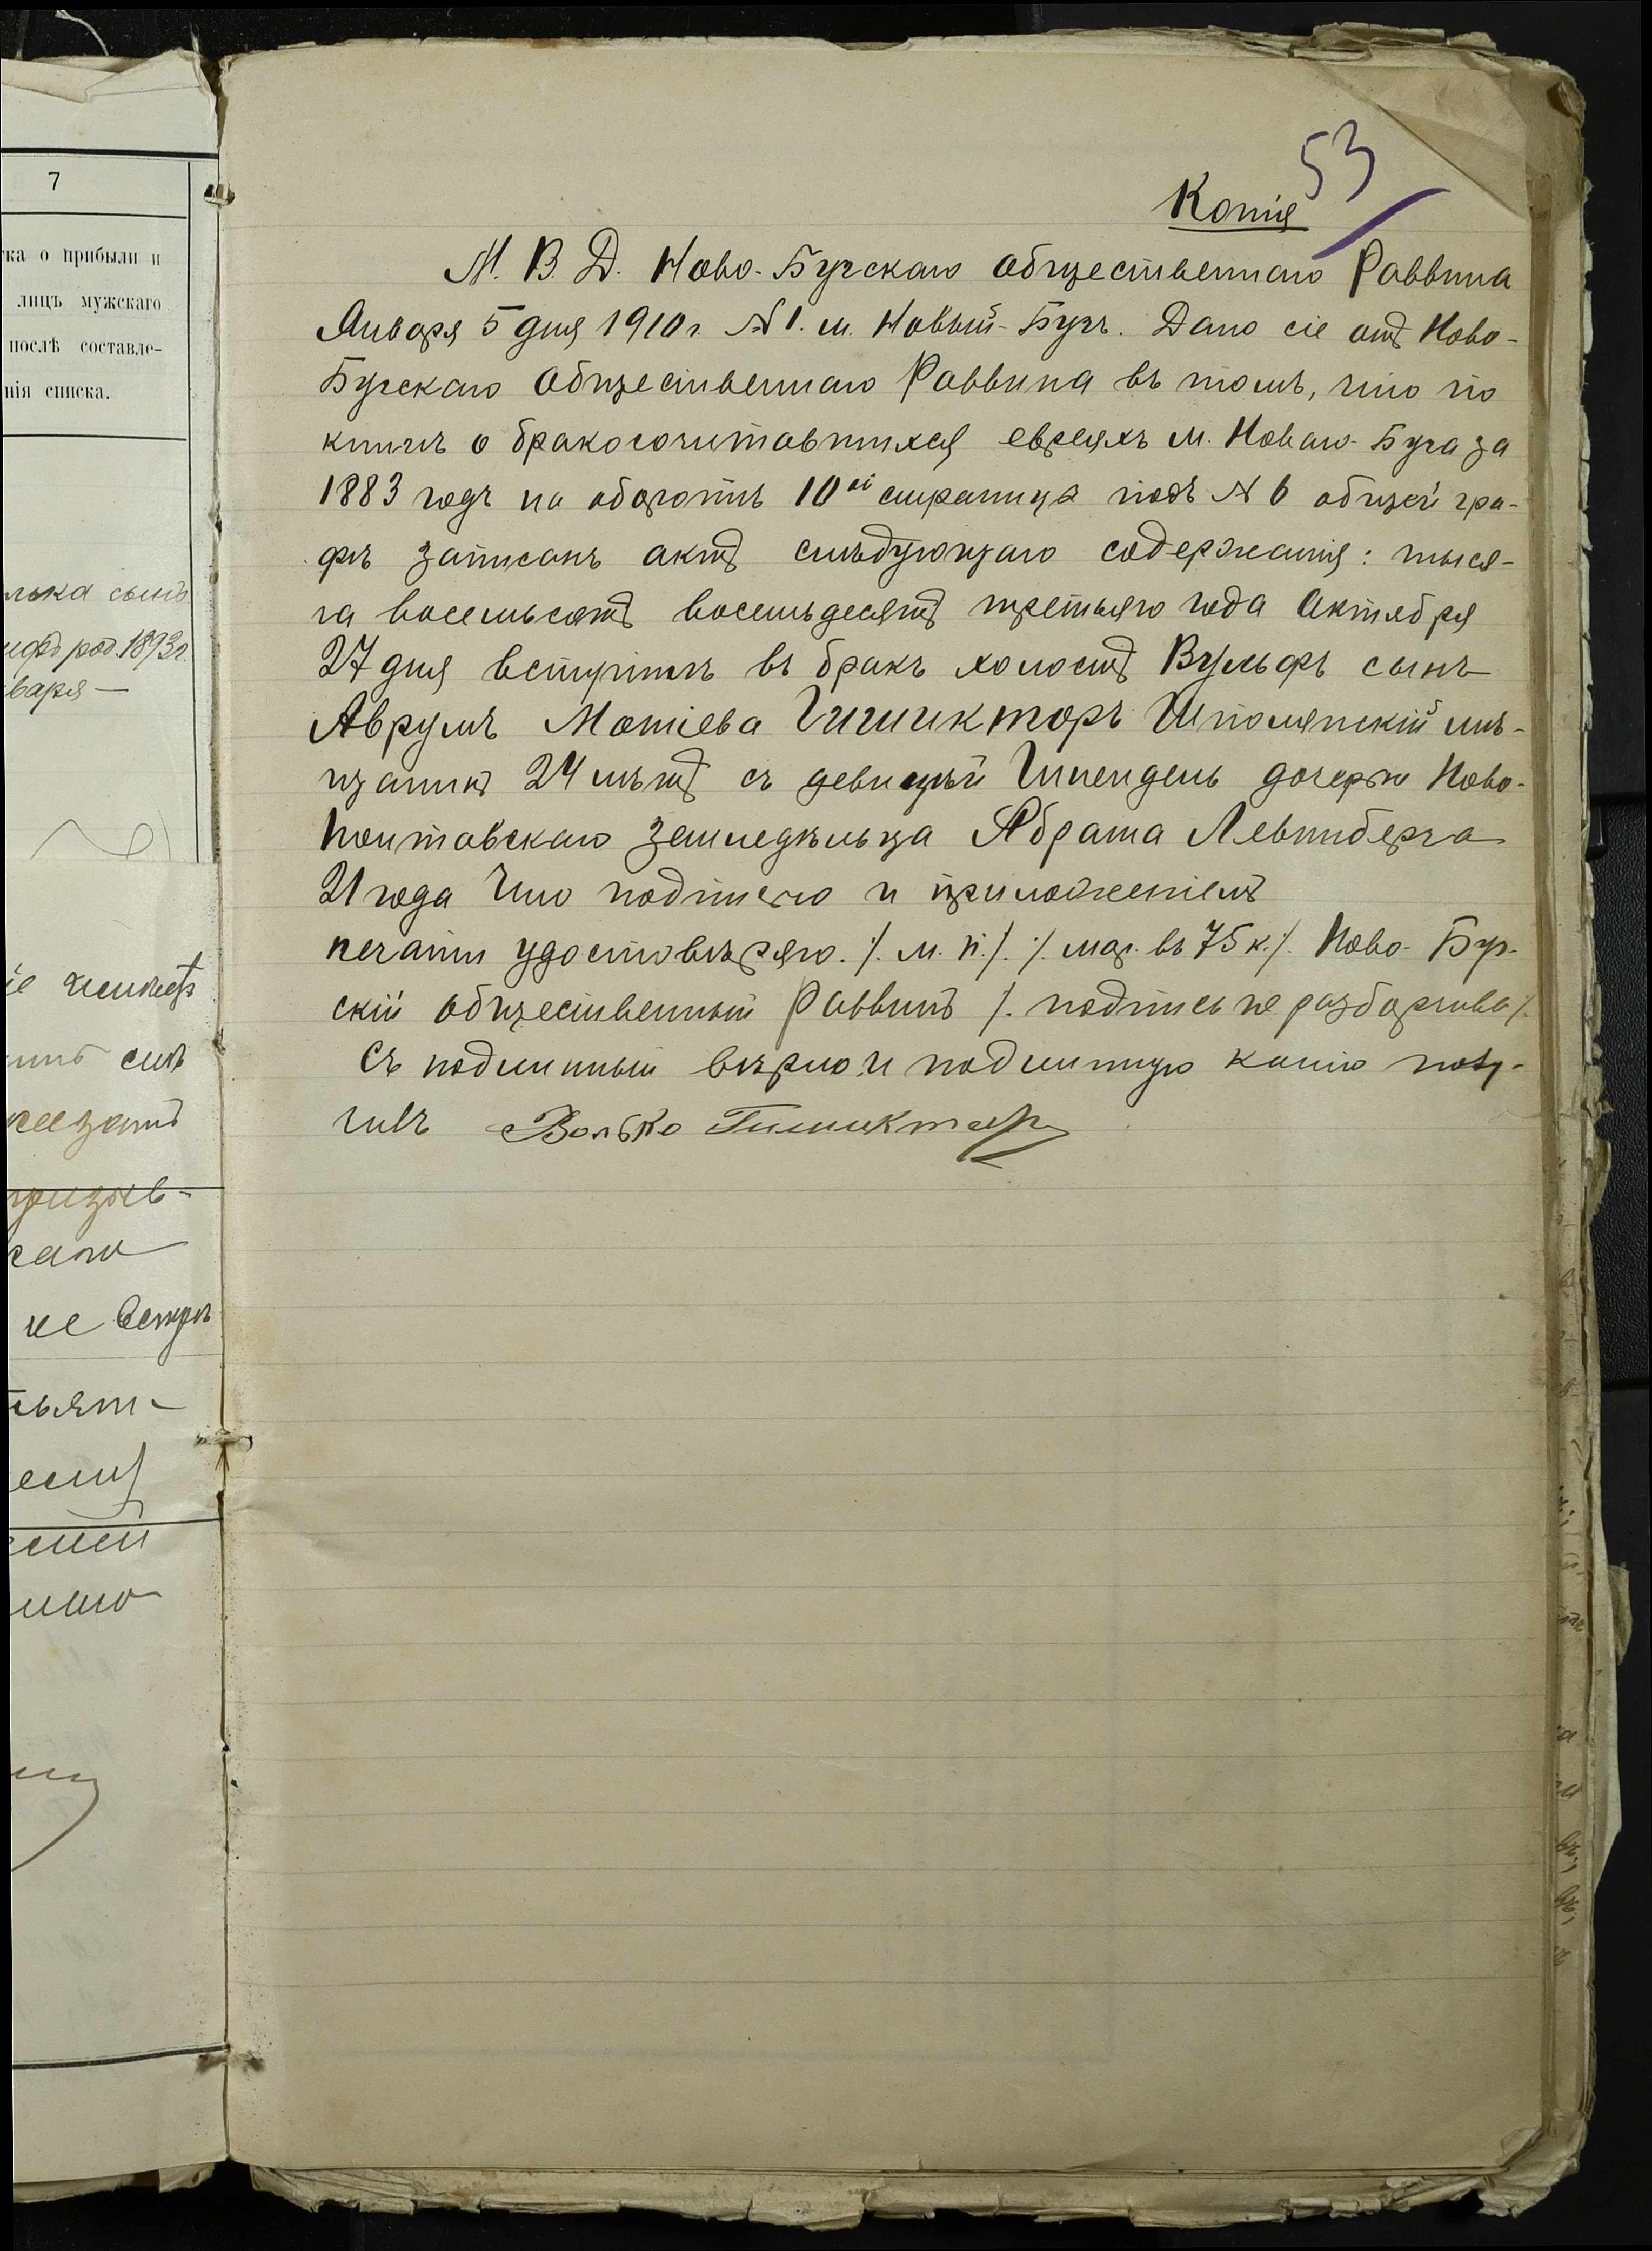 7
тка о прибыли и
лицъ мужскаго
послѣ составле-
нія списка.
сынъ
род. 1893 г.
варя —
не
53
Копія
М. В. Д. Ново-Бугскаго общественнаго Раввина
Января 5 дня 1910 г. № 1. м. Новый-Бугъ. Дано сіе отъ Ново-
Бугскаго Общественнаго Раввина въ томъ, что по
книгѣ о бракосочитавшихся евреяхъ м. Новаго-Буга за
1883 годъ на оборотѣ 10ой страница подъ № 6 общей гра-
фѣ записанъ актъ слѣдующаго содержанія: тыся-
ча восемьсотъ восемьдесятъ третьяго года Октября
27 дня вступилъ въ бракъ холостъ Вульфъ сынъ
Аврумъ Мотіева Гишикторъ Шполянскій мѣ-
щанинъ 24 лѣтъ съ девицей Шпендель дочерью Ново-
Полтавскаго земледѣльца Абрама Левинберга
21 года Что подписью и приложеніемъ
печати удостовѣряю. /. м. п. /. /. мар. въ 75 к. /. Ново-Буг-
скій общественный Раввинъ /. подпись не разборчива /.
Съ подлинным вѣрно и подлинную копію полу-
чилъ Волько Гишиктор